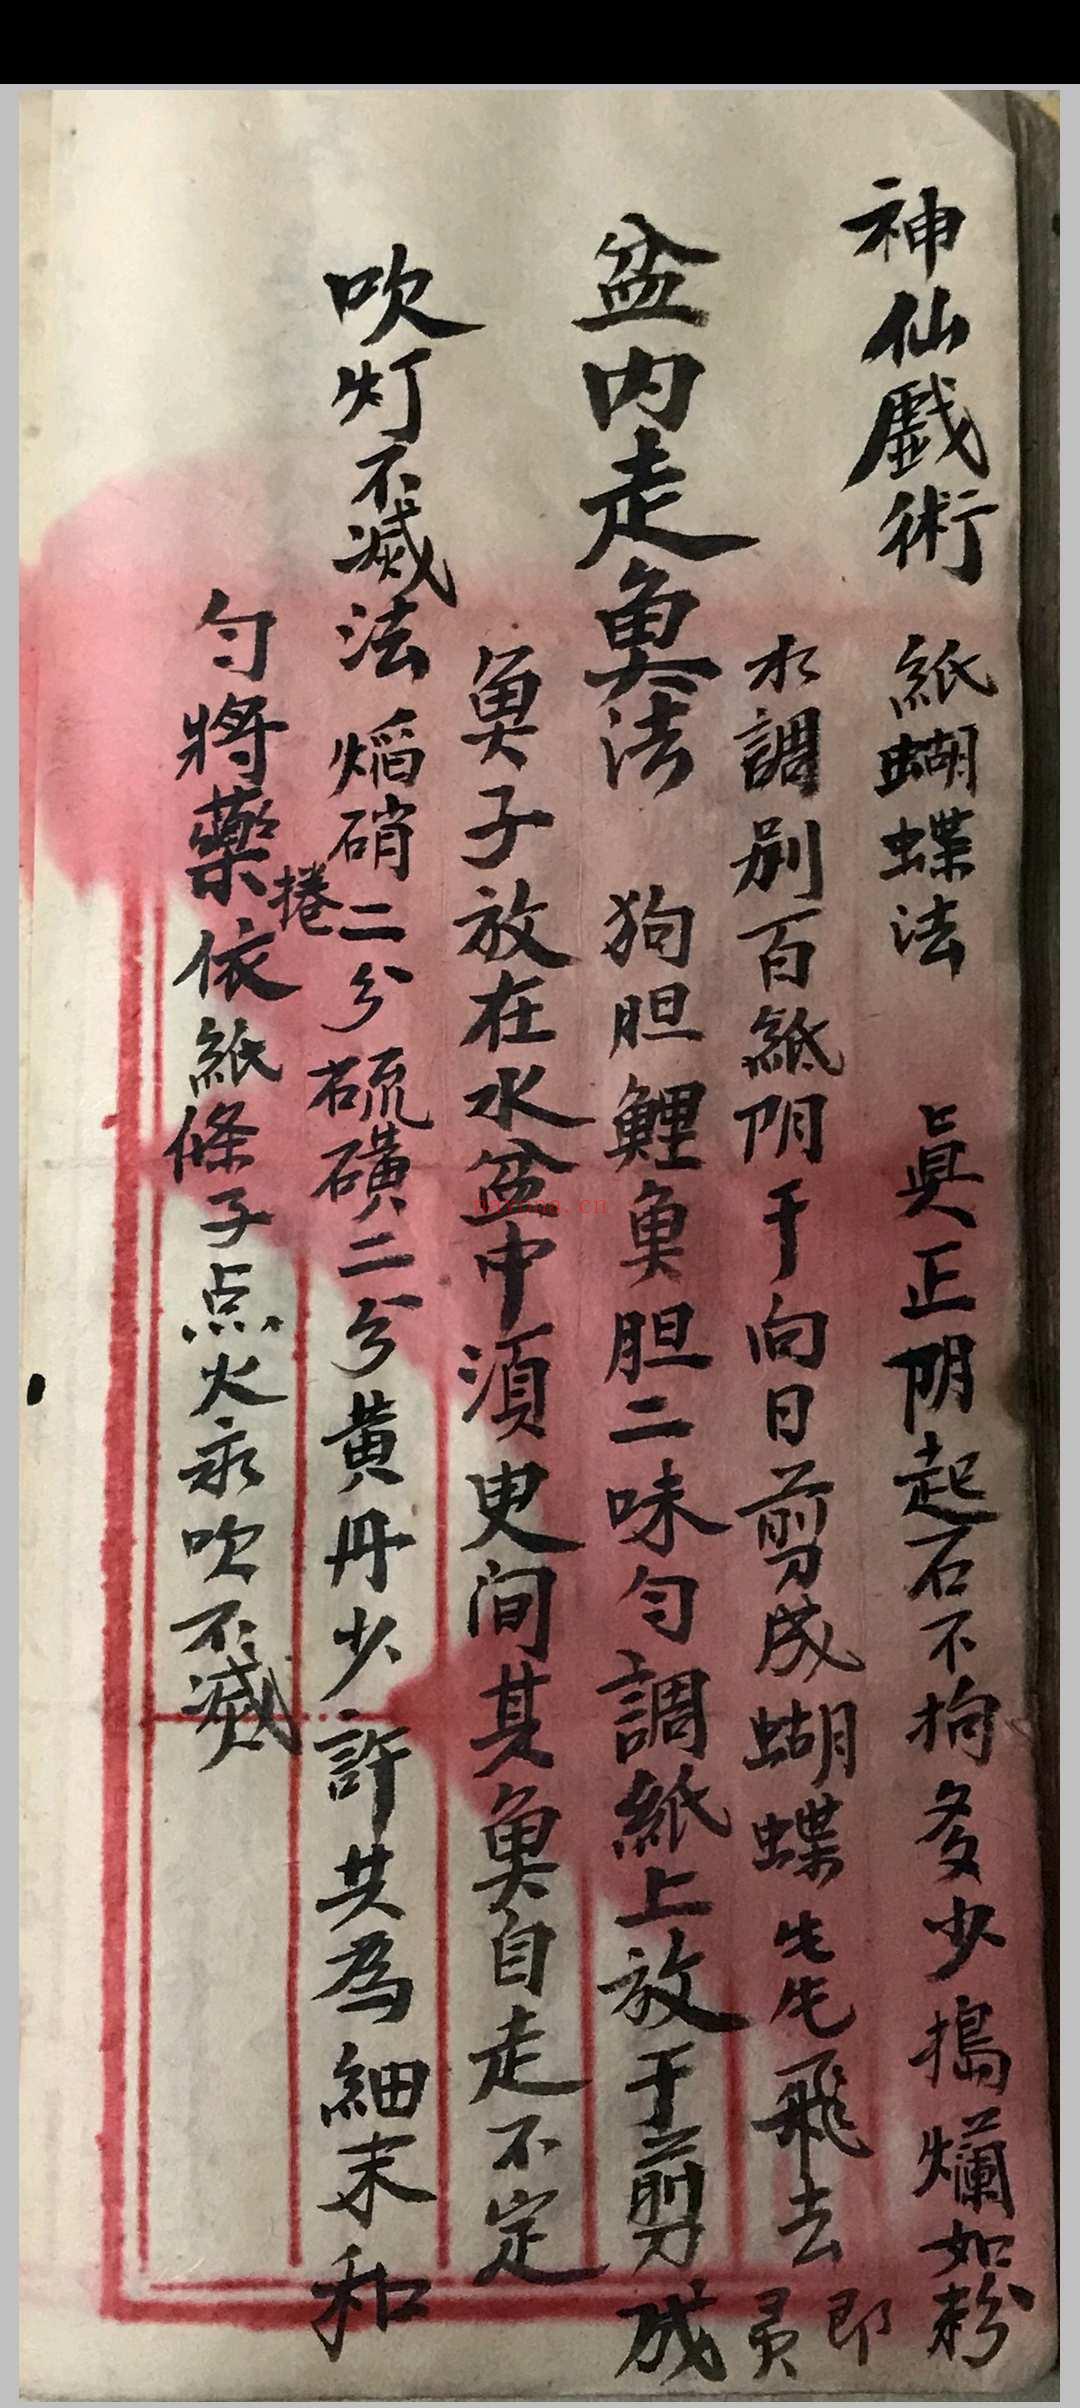 神仙戯術
紙蝴蝶法 真正阴起石不拘多少搗爛如粉
水調刷百紙阴干向日剪成蝴蝶 飛去即灵
盆内走魚法 狗胆鯉魚胆二味匀調紙上放干剪成
魚子放在水盆中須臾间其魚自走不定
吹灯不滅法 焰硝二分硫磺二分黄丹少許共為細末和
匀將藥捲依紙條子点火永吹不滅